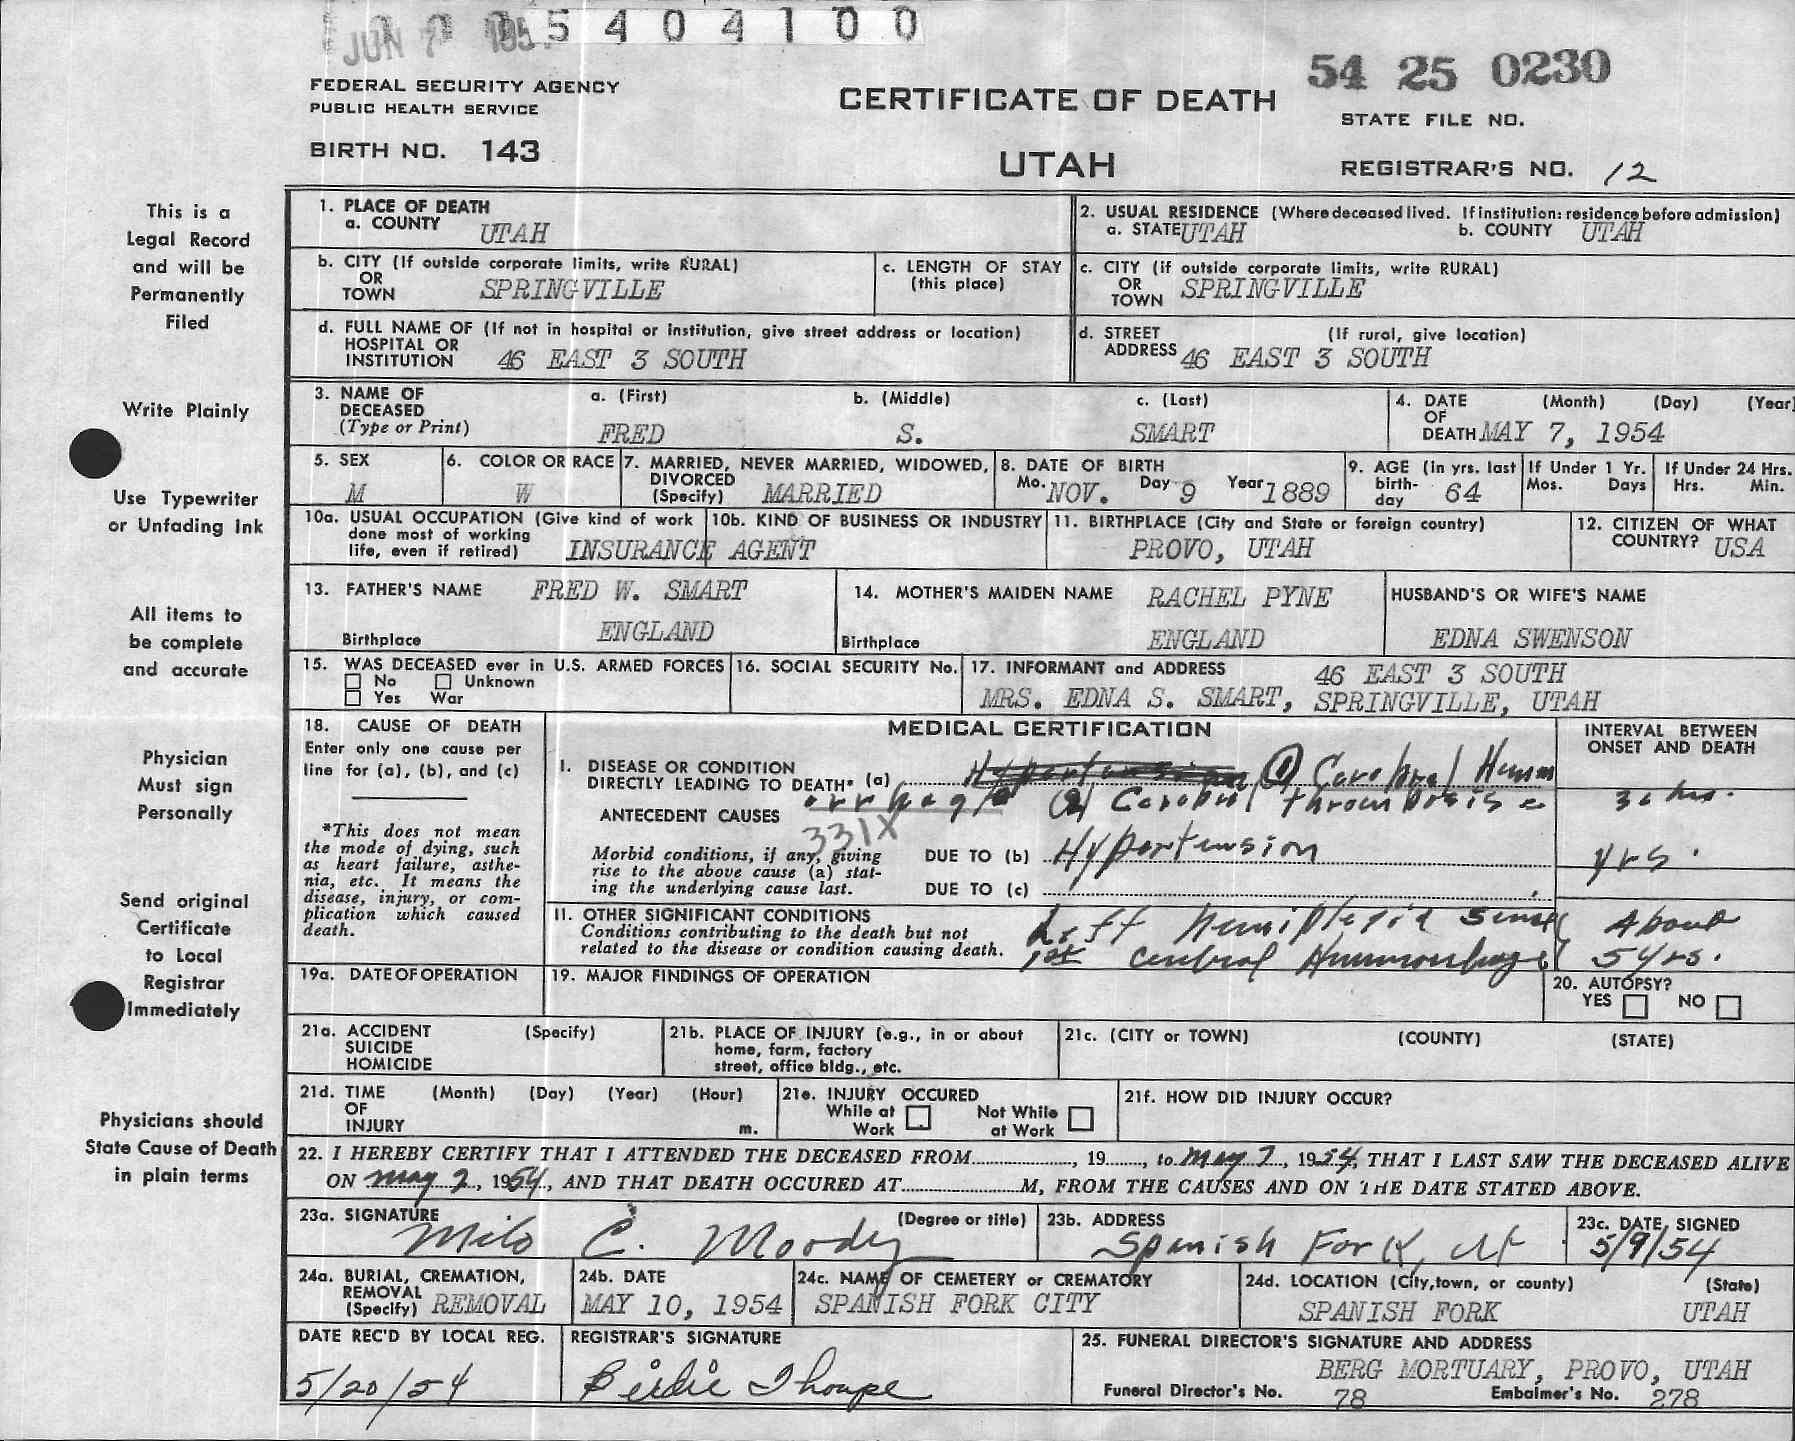 JUN 7 195
5 4 0 4 1 0 0
54 25 0230
FEDERAL SECURITY AGENCY
PUBLIC HEALTH SERVICE
CERTIFICATE OF DEATH
STATE FILE NO.
BIRTH NO. 143
UTAH
REGISTRAR'S NO. 12
This is a
Legal Record
and will be
Permanently
Filed
Write Plainly
Use Typewriter
or Unfading Ink
All items to
be complete
and accurate
Physician
Must sign
Personally
Send original
Certificate
to Local
Registrar
Immediately
Physicians should
State Cause of Death
in plain terms
1. PLACE OF DEATH
a. COUNTY UTAH
2. USUAL RESIDENCE (Where deceased lived. If institution: residence before admission)
a. STATE UTAH b. COUNTY UTAH
b. CITY (If outside corporate limits, write RURAL)
OR
TOWN SPRINGVILLE
c. LENGTH OF STAY
(this place)
c. CITY (if outside corporate limits, write RURAL)
OR
TOWN SPRINGVILLE
d. FULL NAME OF (If not in hospital or institution, give street address or location)
HOSPITAL OR
INSTITUTION 46 EAST 3 SOUTH
d. STREET (If rural, give location)
ADDRESS 46 EAST 3 SOUTH
3. NAME OF
DECEASED
(Type or Print)
a. (First) b. (Middle) c. (Last)
FRED S. SMART
4. DATE (Month) (Day) (Year)
OF
DEATH MAY 7, 1954
5. SEX
M
6. COLOR OR RACE
W
7. MARRIED, NEVER MARRIED, WIDOWED,
DIVORCED
(Specify) MARRIED
8. DATE OF BIRTH
Mo. NOV. Day 9 Year 1889
9. AGE (in yrs. last
birth-
day 64
If Under 1 Yr.
Mos. Days
If Under 24 Hrs.
Hrs. Min.
10a. USUAL OCCUPATION (Give kind of work
done most of working
life, even if retired) INSURANCE AGENT
10b. KIND OF BUSINESS OR INDUSTRY
11. BIRTHPLACE (City and State or foreign country)
PROVO, UTAH
12. CITIZEN OF WHAT
COUNTRY? USA
13. FATHER'S NAME FRED W. SMART
Birthplace ENGLAND
14. MOTHER'S MAIDEN NAME RACHEL PYNE
Birthplace ENGLAND
HUSBAND'S OR WIFE'S NAME
EDNA SWENSON
15. WAS DECEASED ever in U.S. ARMED FORCES
No Unknown
Yes War
16. SOCIAL SECURITY No.
17. INFORMANT and ADDRESS 46 EAST 3 SOUTH
MRS. EDNA S. SMART, SPRINGVILLE, UTAH
18. CAUSE OF DEATH
Enter only one cause per
line for (a), (b), and (c)
*This does not mean
the mode of dying, such
as heart failure, asthe-
nia, etc. It means the
disease, injury, or com-
plication which caused
death.
MEDICAL CERTIFICATION
INTERVAL BETWEEN
ONSET AND DEATH
I. DISEASE OR CONDITION
DIRECTLY LEADING TO DEATH* (a) Hypertension (1) Cerebral Hemm
orrhage (2) Cerebral thrombosis c
36 hrs.
ANTECEDENT CAUSES
331X
Morbid conditions, if any, giving
rise to the above cause (a) stat-
ing the underlying cause last.
DUE TO (b) Hypertension
yrs.
DUE TO (c)
II. OTHER SIGNIFICANT CONDITIONS
Conditions contributing to the death but not
related to the disease or condition causing death.
Left Hemiplegia since
1st cerebral Hemmorrhage
About
5 yrs.
19a. DATE OF OPERATION
19. MAJOR FINDINGS OF OPERATION
20. AUTOPSY?
YES NO
21a. ACCIDENT (Specify)
SUICIDE
HOMICIDE
21b. PLACE OF INJURY (e.g., in or about
home, farm, factory
street, office bldg., etc.
21c. (CITY or TOWN) (COUNTY) (STATE)
21d. TIME (Month) (Day) (Year) (Hour)
OF
INJURY m.
21e. INJURY OCCURED
While at Not While
Work at Work
21f. HOW DID INJURY OCCUR?
22. I HEREBY CERTIFY THAT I ATTENDED THE DECEASED FROM..................., 19......, to May 7, 1954, THAT I LAST SAW THE DECEASED ALIVE
ON May 2, 1954, AND THAT DEATH OCCURED AT.....................M, FROM THE CAUSES AND ON THE DATE STATED ABOVE.
23a. SIGNATURE (Degree or title)
Milo C. Moody
23b. ADDRESS
Spanish Fork, Ut
23c. DATE SIGNED
5/9/54
24a. BURIAL, CREMATION,
REMOVAL
(Specify) REMOVAL
24b. DATE
MAY 10, 1954
24c. NAME OF CEMETERY or CREMATORY
SPANISH FORK CITY
24d. LOCATION (City, town, or county) (State)
SPANISH FORK UTAH
DATE REC'D BY LOCAL REG.
5/20/54
REGISTRAR'S SIGNATURE
Birdie Thorpe
25. FUNERAL DIRECTOR'S SIGNATURE AND ADDRESS
BERG MORTUARY, PROVO, UTAH
Funeral Director's No. 78 Embalmer's No. 278